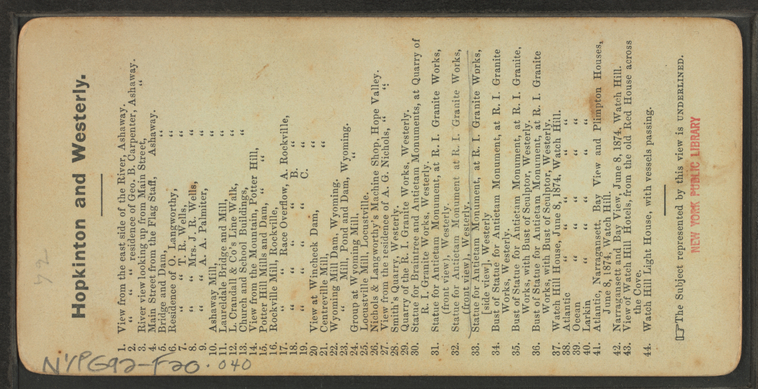 Hopkinton and Westerly.
1. View from the east side of the River, Ashaway.
2. " " " residence of Geo. B. Carpenter, Ashaway.
3. River view looking up from Main Street, "
4. Main Street from the Flag Staff, Ashaway.
5. Bridge and Dam, "
6. Residence of O. Langworthy, "
7. " " T. R. Wells, "
8. " " Mrs. J. R. Wells, "
9. " " A. A. Palmiter, "
10. Ashaway Mill, "
11. Laureldale Bridge and Mill, "
12. L. Crandall & Co's Line Walk, "
13. Church and School Buildings, "
14. View from the Mountain, Potter Hill,
15. Potter Hill Mills and Dam, "
16. Rockville Mill, Rockville,
17. " " Race Overflow, A. Rockville,
18. " " " B. "
19. " " " C. "
20 View at Wincheck Dam, "
21. Centreville Mill, "
22. Wyoming Mill Dam, Wyoming.
23. " Mill, Pond and Dam, Wyoming.
24. Group at Wyoming Mill, "
25. Locustville Mill, Locustville.
26. Nichols & Langworthy's Machine Shop, Hope Valley.
27. View from the residence of A. G. Nichols, " "
28. Smith's Quarry, Westerly.
29. Quarry of the R. I. Granite Works, Westerly.
30. Statue for Braintree and Antietam Monuments, at Quarry of
R. I. Granite Works, Westerly.
31. Statue for Antietam Monument, at R. I. Granite Works,
(front view) Westerly.
32. Statue for Antietam Monument at R. I. Granite Works,
(front view) Westerly.
33. Statue for Antietam Monument, at R. I. Granite Works,
[side view] Westerly
34. Bust of Statue for Antietam Monument, at R. I. Granite
Works, Westerly.
35. Bust of Statue for Antietam Monument, at R. I. Granite,
Works, with Bust of Sculptor, Westerly.
36. Bust of Statue for Antietam Monument, at R. I. Granite
Works, with Bust of Sculptor, Westerly.
37. Watch Hill House, June 8, 1874, Watch Hill.
38. Atlantic " " " "
39. Ocean " " " "
40. Larkin " " " "
41. Atlantic, Narragansett, Bay View and Plimpton Houses,
June 8, 1874, Watch Hill.
42. Narragansett and Bay View, June 8, 1874, Watch Hill.
43. View of Watch Hill Hotels, from the old Red House across
the Cove.
44. Watch Hill Light House, with vessels passing.
☞The Subject represented by this view is UNDERLINED.
NEW YORK PUBLIC LIBRARY
NYPG92-F20.040